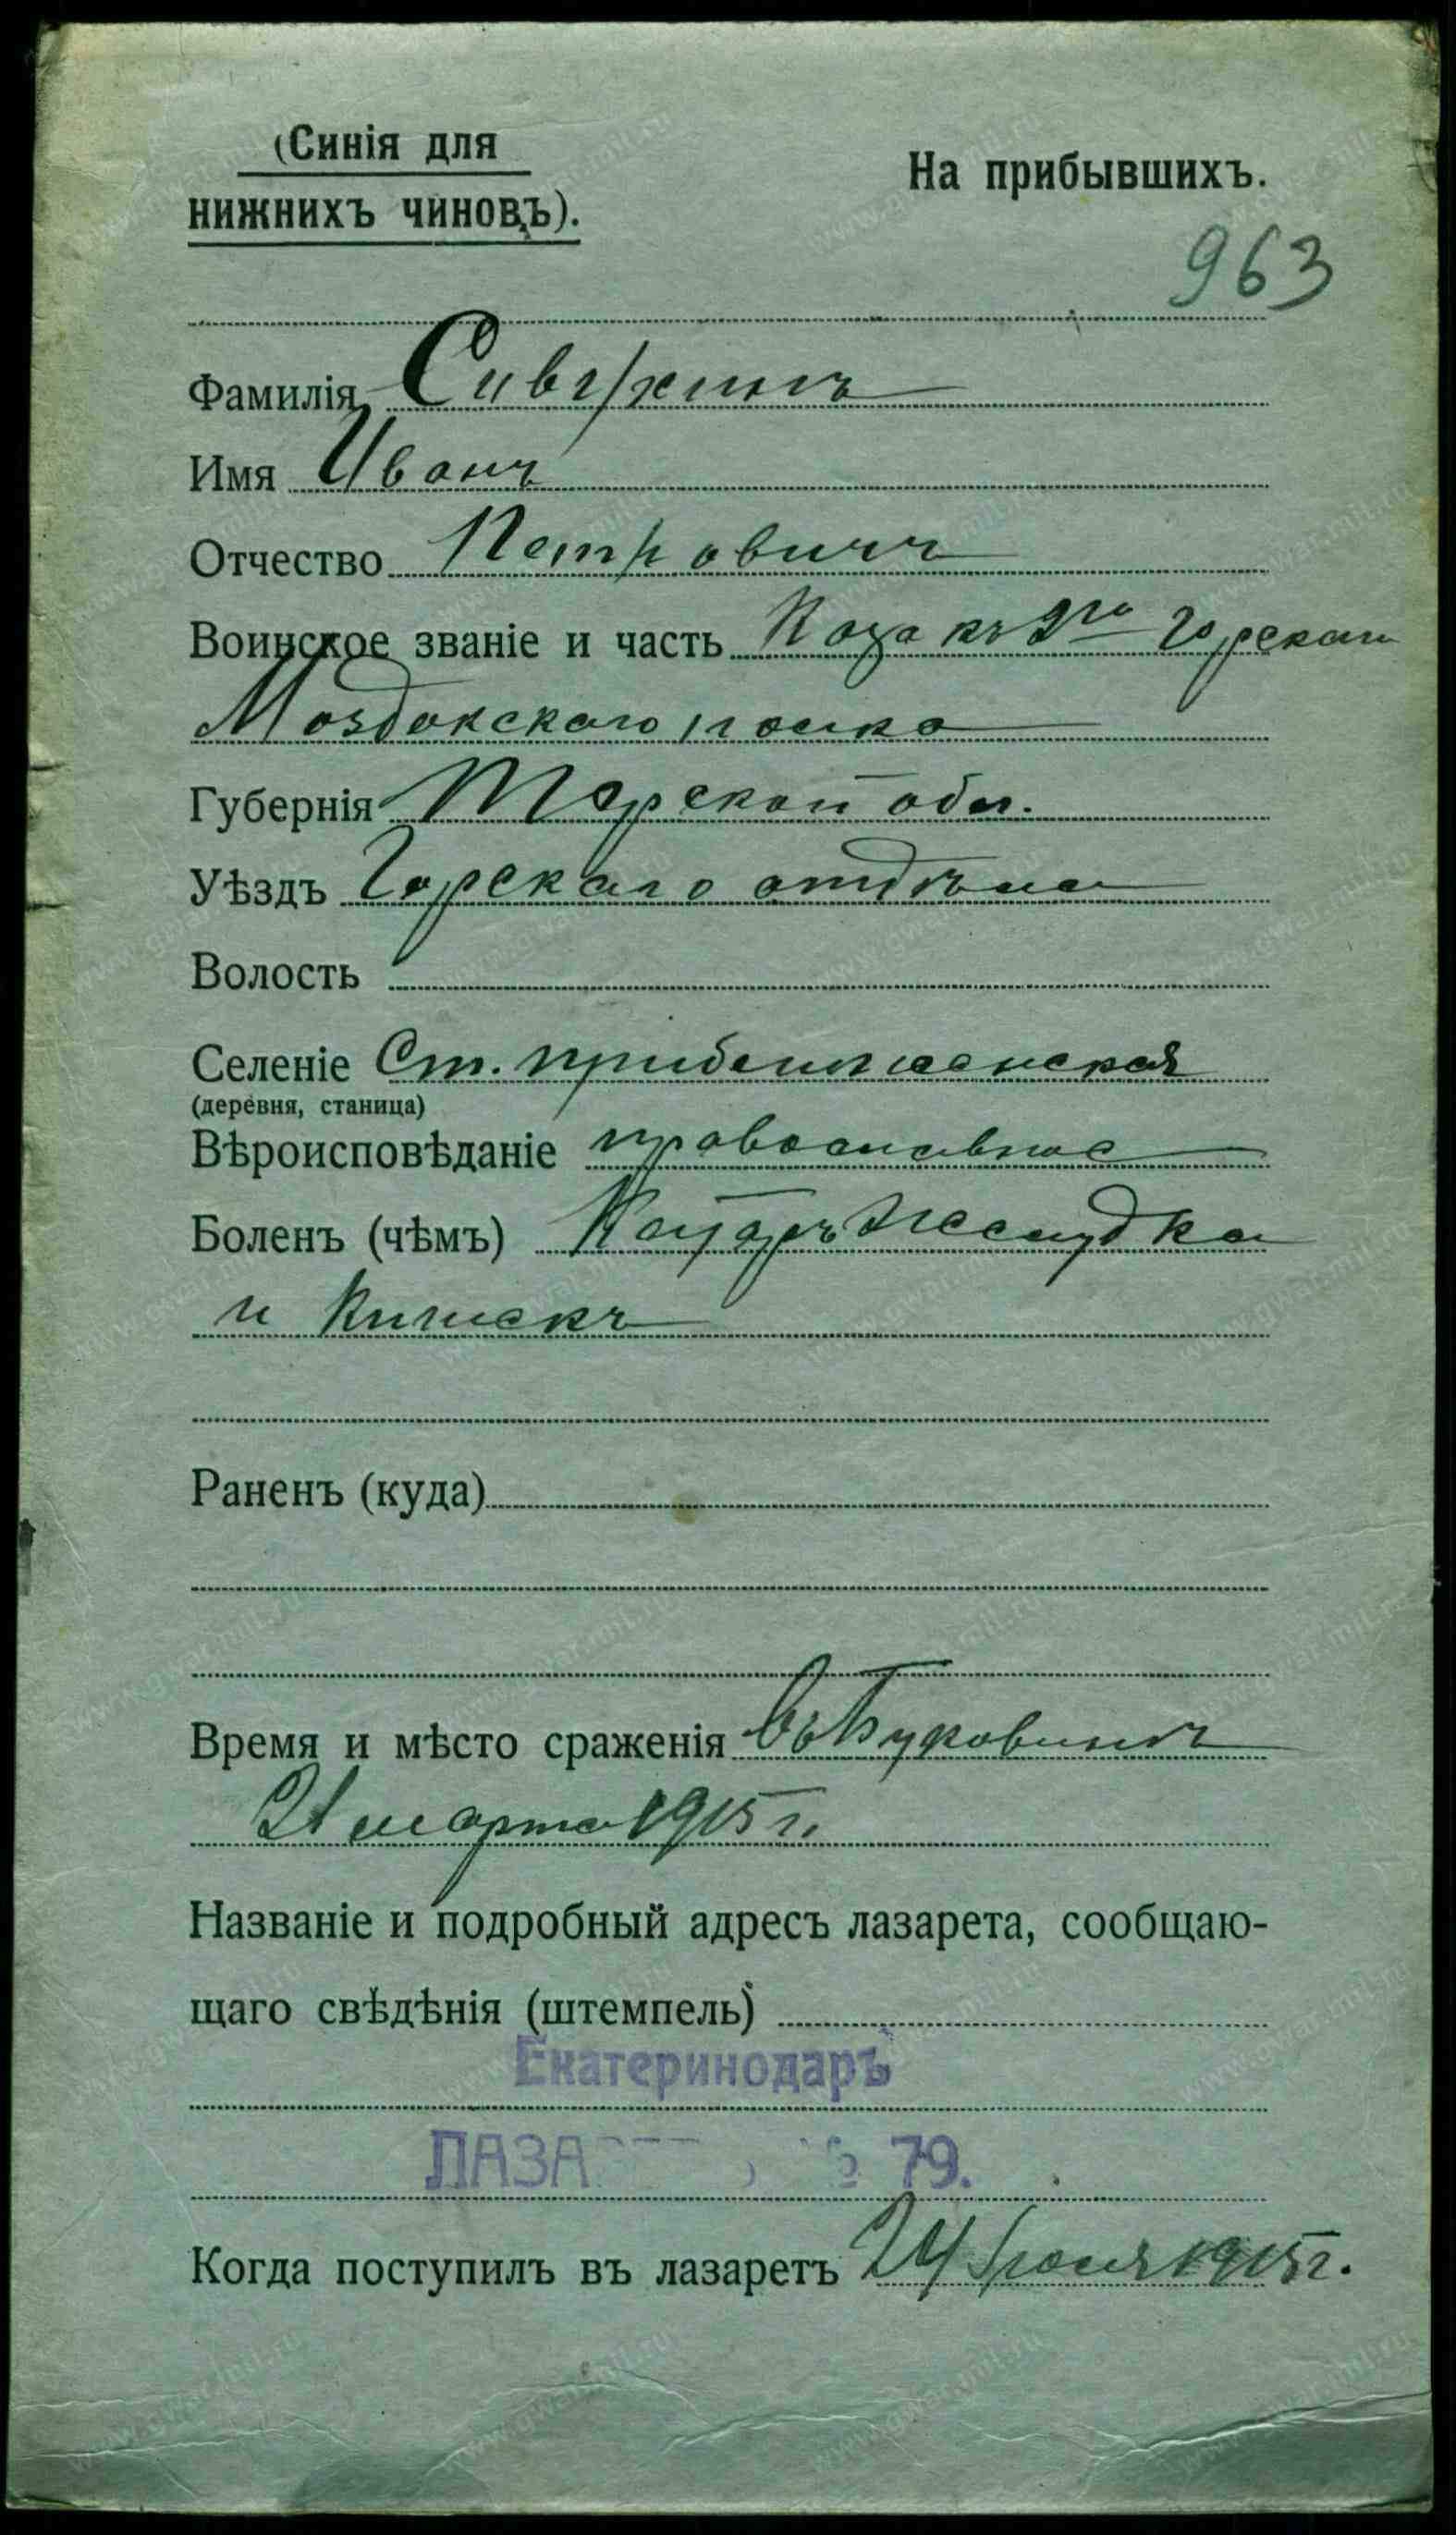 (Синія для
нижнихъ чиновъ).
На прибывшихъ.
963
Фамилія Сиверхинъ
Имя Иванъ
Отчество Петровичъ
Воинское званіе и часть Козакъ 2го Горскаго
Моздокскаго полка
Губернія Терской обл.
Уѣздъ Горскаго отдѣла
Волость
Селеніе Ст. прибли
(деревня, станица)
Вѣроисповѣданіе православное
Боленъ (чѣмъ) Катаръ желудка
и кишекъ
Раненъ (куда)
Время и мѣсто сраженія въ Буковинѣ
21 марта 1915 г.
Названіе и подробный адресъ лазарета, сообщаю-
щаго свѣдѣнія (штемпель)
Екатеринодаръ
ЛАЗА 79.
Когда поступилъ въ лазаретъ 24 Іюля 1915 г.